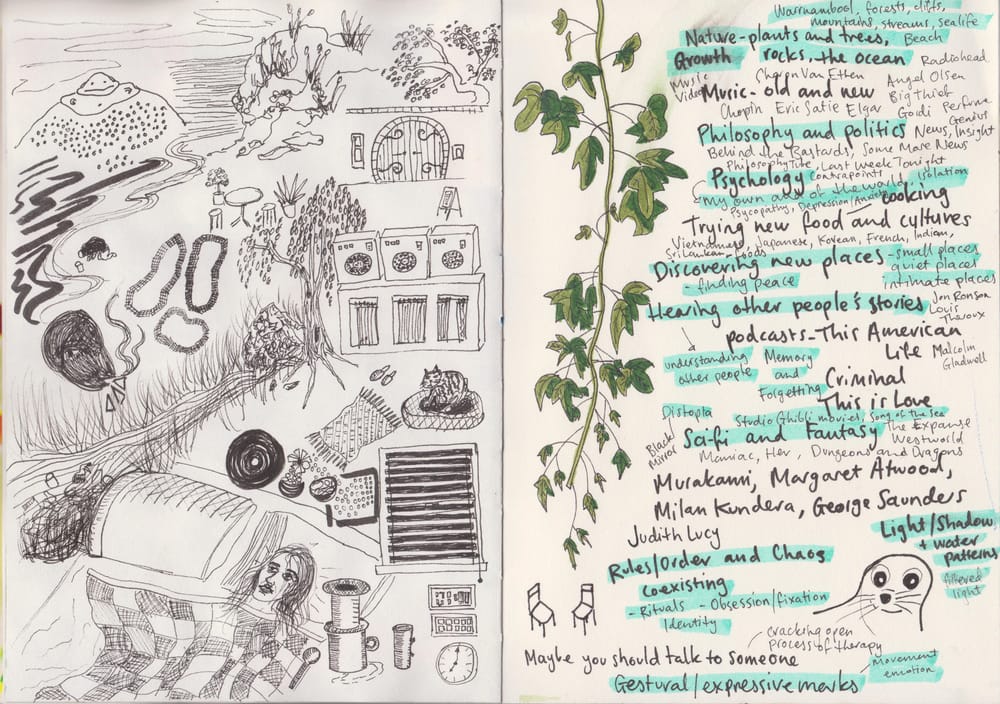 Warrnambool, forests, cliffs,
mountains, streams, sealife
Nature-plants and trees, Beach
Growth rocks, the ocean
Radiohead
Music
Videos
Sharon Van Etten
Angel Olsen
Music - old and new
Big Thief
Chopin Eric Satie Elgar
Perfume
Genius
Philosophy and politics
News, Insight
Behind the Bastards, Some More News
PhilosophyTube, Last Week Tonight
Psychology
contrapoints
isolation
my own area of the world
Psycopathy, Depression/Anxiety
cooking
Trying new food and cultures
Vietnamese, Japanese, Korean, French, Indian,
Sri Lankan foods
Discovering new places
- small places
quiet places
intimate places
- finding peace
Hearing other people's stories
Jon Ronson
Louis
Theroux
podcasts - This American
Life
Malcolm
Gladwell
understanding
other people
Memory
and
Forgetting
Criminal
This is Love
Distopia
Studio Ghibli movies, Song of the Sea
Black
Mirror
Sci-fi and Fantasy
The Expanse
Westworld
Maniac, Her, Dungeons and Dragons
Murakami, Margaret Atwood,
Milan Kundera, George Saunders
Judith Lucy
Light/Shadow
+ water
patterns
filtered
light
Rules/Order and Chaos
coexisting
- Rituals - Obsession/fixation
Identity
cracking open
process of therapy
Maybe you should talk to someone
movement
emotion
Gestural/expressive marks